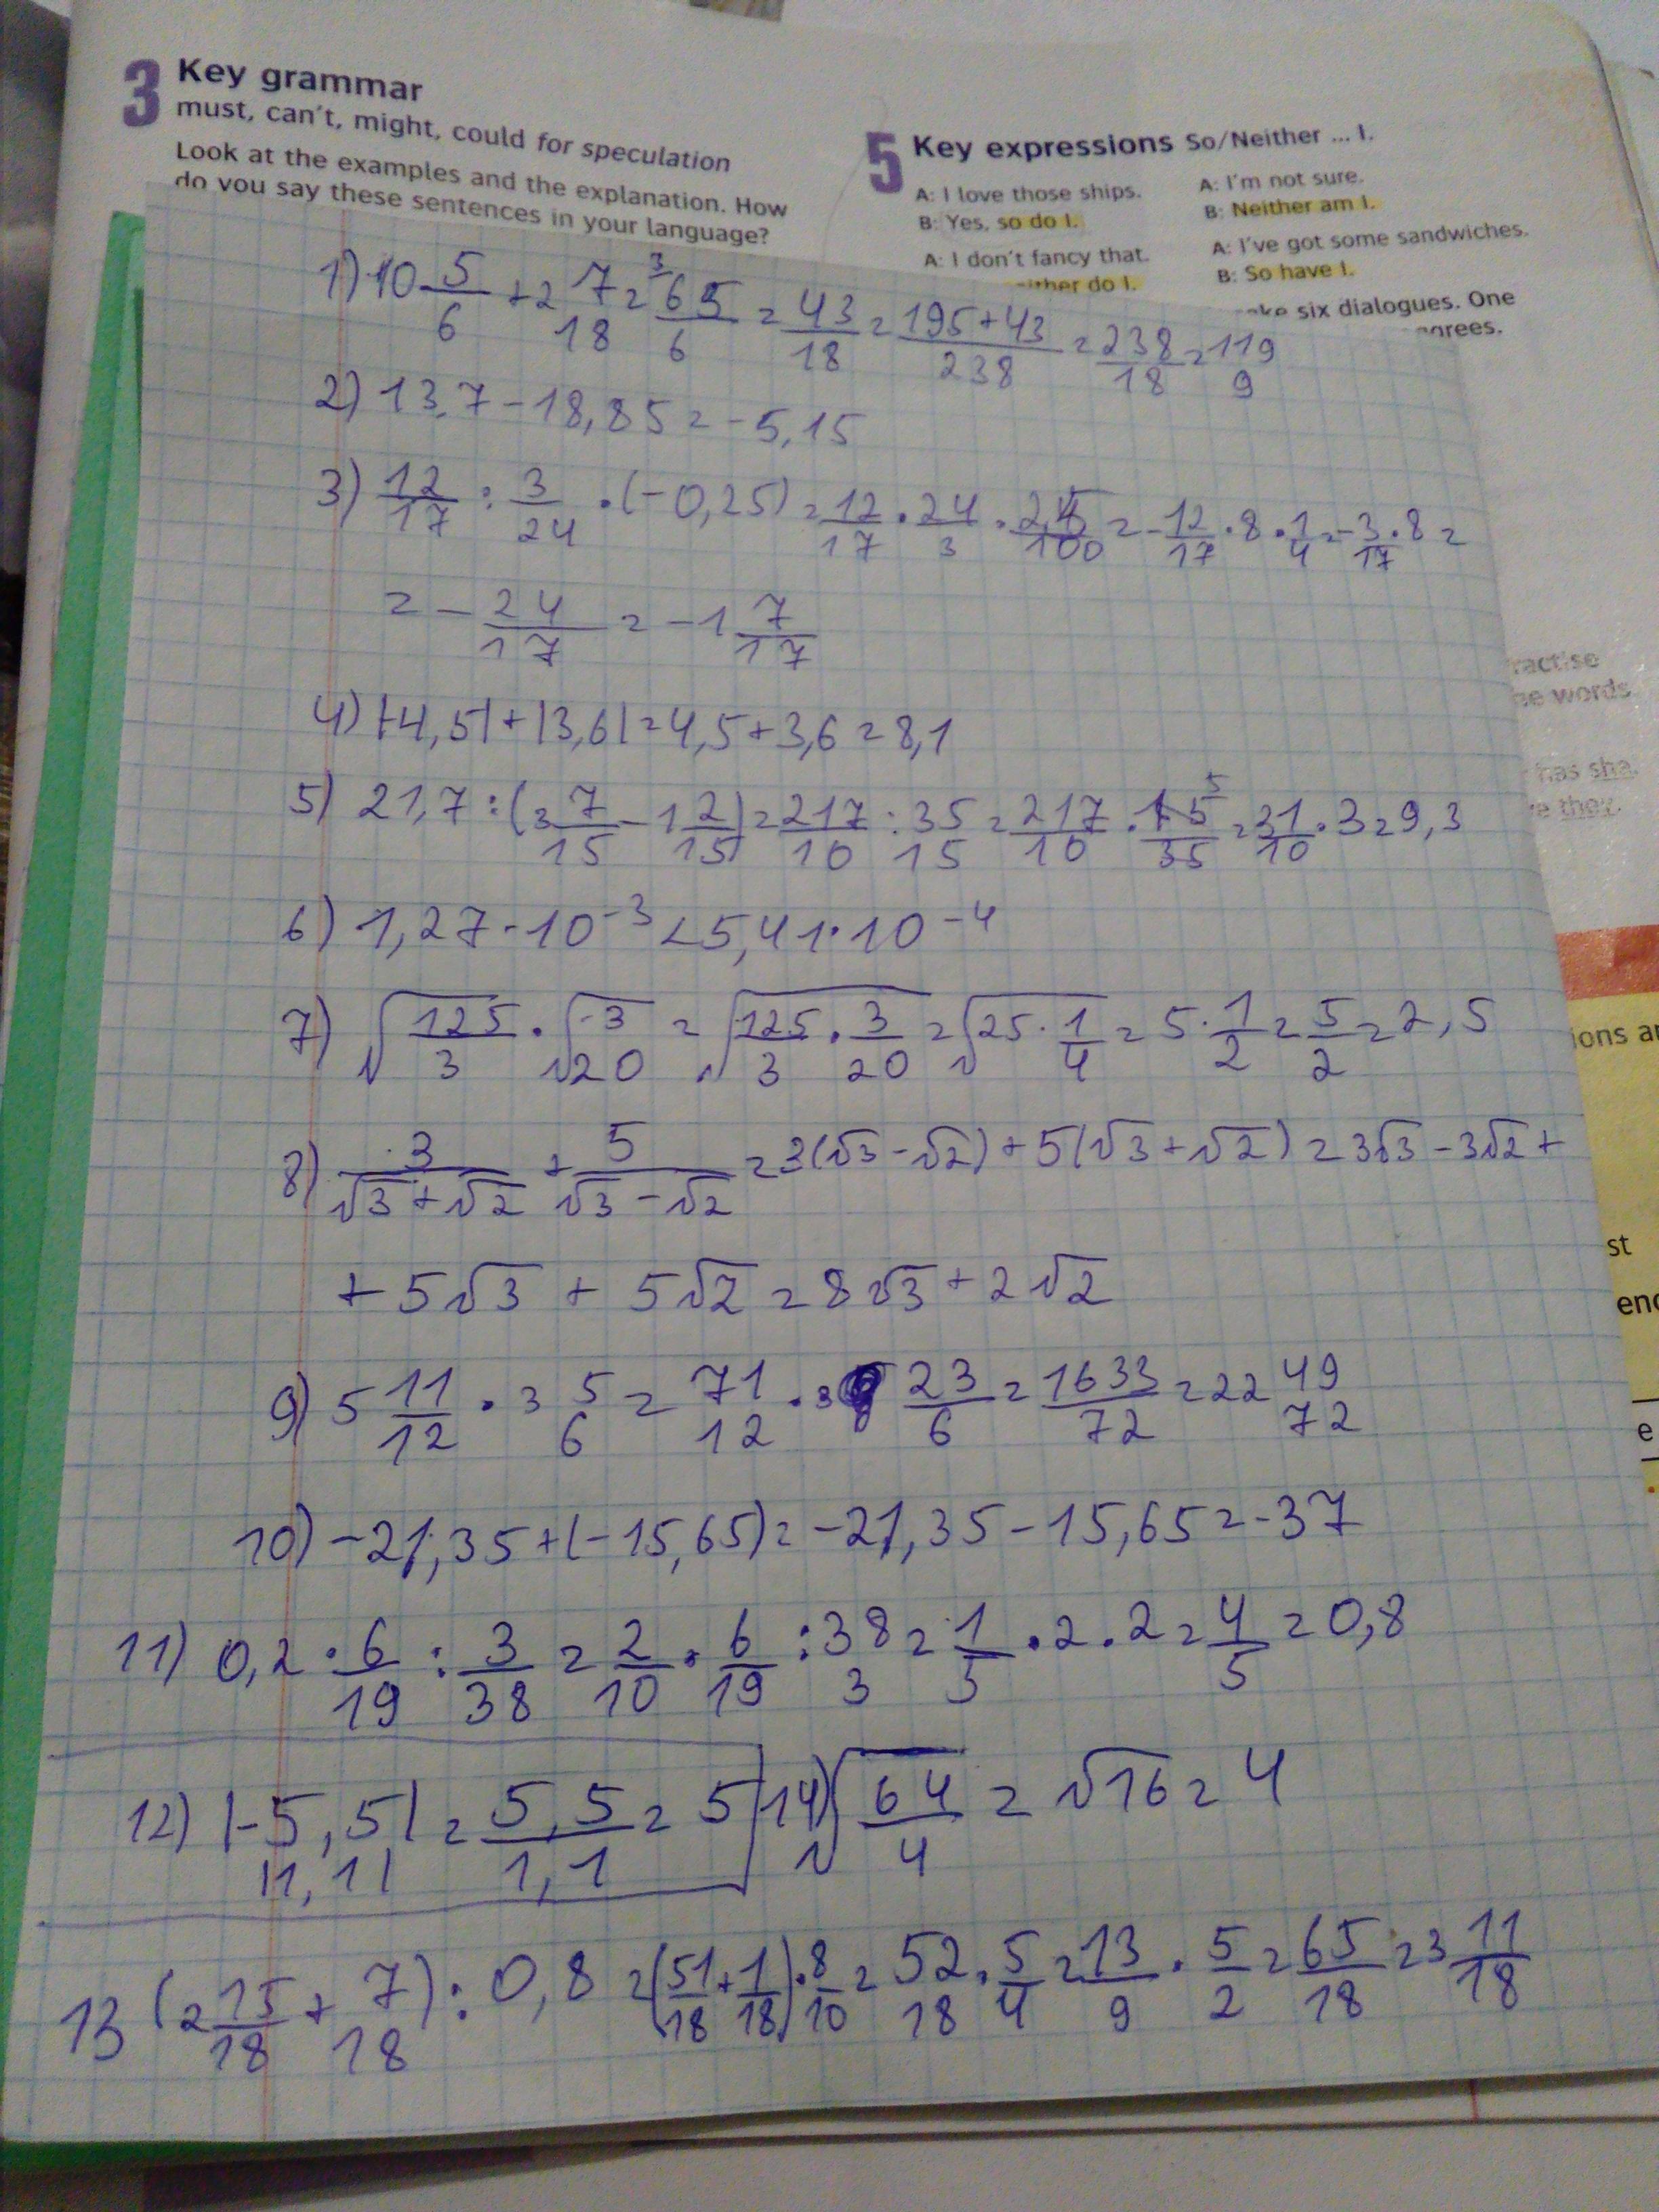 3 Key grammar
must, can't, might, could for speculation
Look at the examples and the explanation. How
do you say these sentences in your language?
5 Key expressions So/Neither ... I.
A: I love those ships.
B: Yes, so do I.
A: I don't fancy that.
do I.
A: I'm not sure.
B: Neither am I.
A: I've got some sandwiches.
B: So have I.
six dialogues. One
1) 10 5/6 + 2 7/18 = 65/6 = 43/18 = 195+43/238 = 238/18 = 119/9
2) 13,7 - 18,85 = -5,15
3) 12/17 : 3/24 · (-0,25) = 12/17 · 24/3 · 25/100 = -12/17 · 8 · 1/4 = -3/17 · 8 =
= -24/17 = -1 7/17
4) |-4,5| + |3,6| = 4,5 + 3,6 = 8,1
5) 21,7 : (3 7/15 - 1 2/15) = 217/10 : 35/15 = 217/10 · 15/35 = 31/10 · 3 = 9,3
6) 1,27 · 10⁻³ < 5,41 · 10⁻⁴
7) √125/3 · √3/20 = √125/3 · 3/20 = √25 · 1/4 = 5 · 1/2 = 5/2 = 2,5
8) 3/√3+√2 + 5/√3-√2 = 3(√3-√2) + 5(√3+√2) = 3√3 - 3√2 +
+ 5√3 + 5√2 = 8√3 + 2√2
9) 5 11/12 · 3 5/6 = 71/12 · 23/6 = 1633/72 = 22 49/72
10) -21,35 + (-15,65) = -21,35 - 15,65 = -37
11) 0,2 · 6/19 : 3/38 = 2/10 · 6/19 : 38/3 = 1/5 · 2 · 2 = 4/5 = 0,8
12) |-5,5|/|1,1| = 5,5/1,1 = 5
14) √64/4 = √16 = 4
13 (2 15/18 + 7/18) : 0,8 = (51/18 + 1/18) · 8/10 = 52/18 · 5/4 = 13/9 · 5/2 = 65/18 = 3 11/18
he words
has sha
e they.
ions a
st